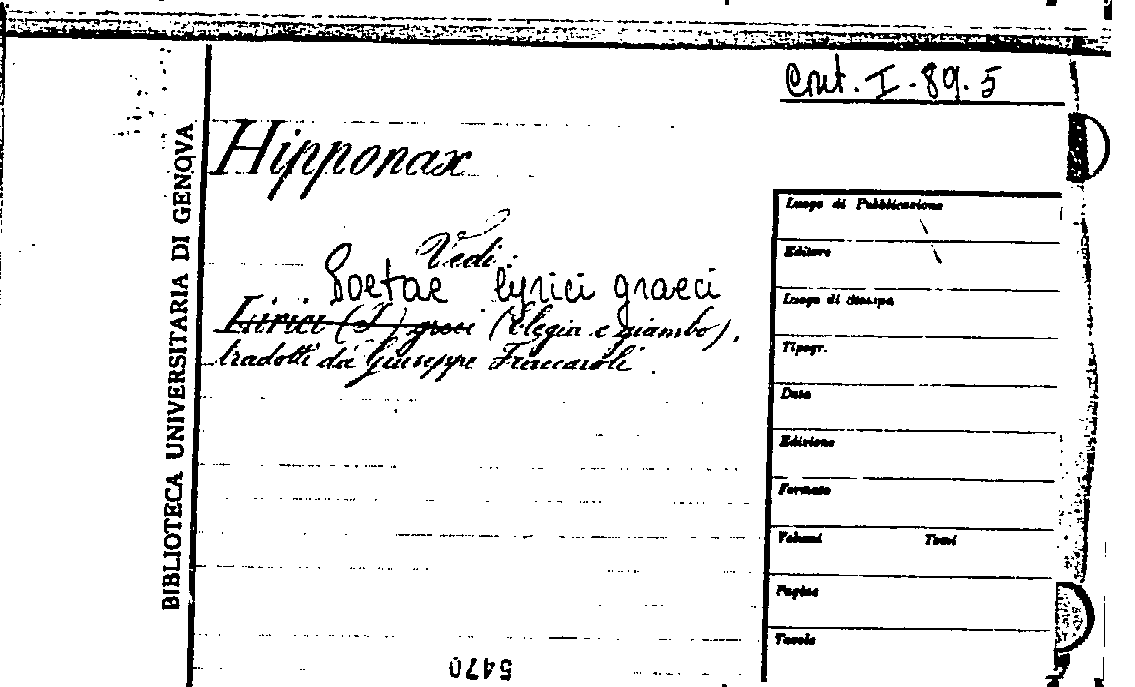 Cout. I-89.5
Hipponax
Vedi:
Poetae lyrici graeci
Lirici (I) greci (Elegia e giambo),
tradotti da Giuseppe Fraccaroli.
BIBLIOTECA UNIVERSITARIA DI GENOVA
Luogo di Pubblicazione
Editore
Luogo di stampa
Tipogr.
Data
Edizione
Formato
Volumi Tomi
Pagine
Tavole
5470